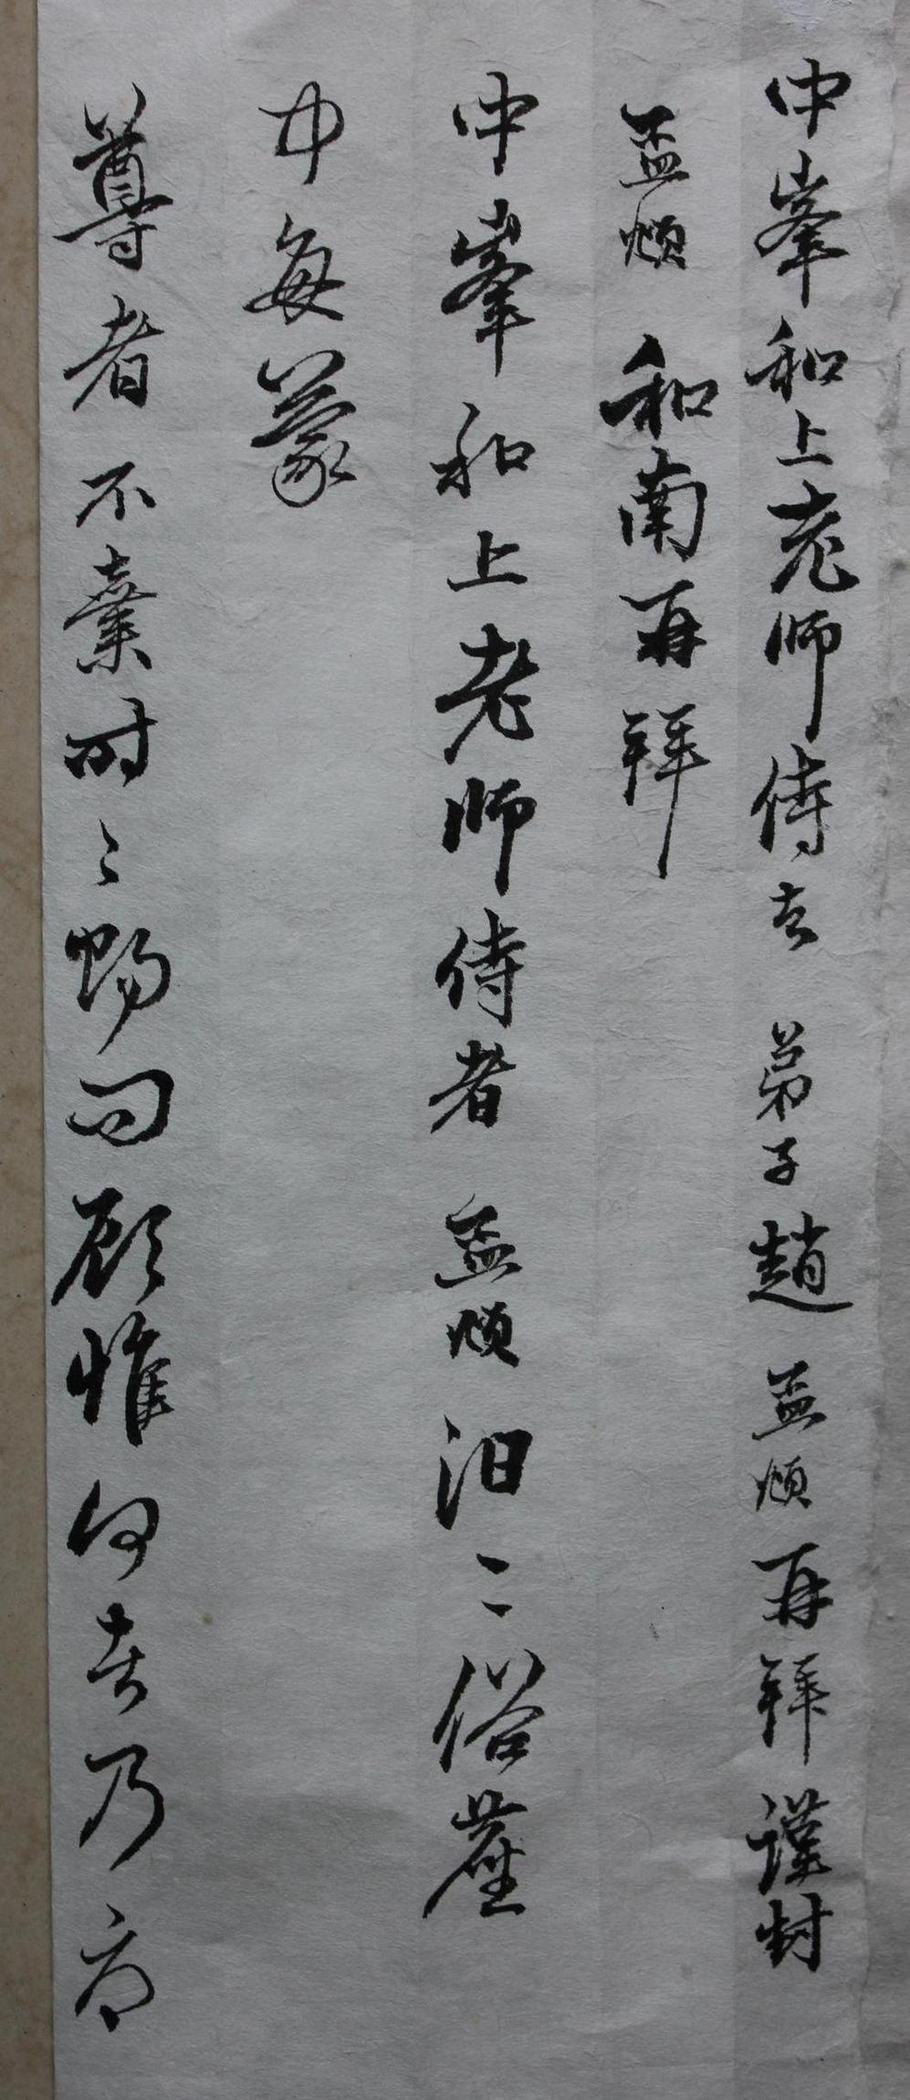 中峯和上老师侍者 弟子趙孟頫再拜謹封
孟頫和南再拜
中峯和上老师侍者 孟頫汩〻俗塵
中每蒙
尊者不棄时〻賜问顧惟何者乃尔